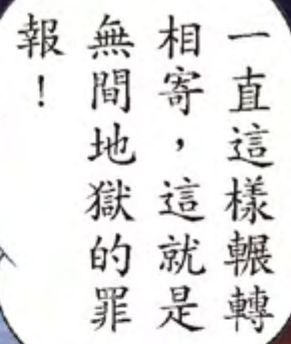 一直這樣輾轉
相寄，這就是
無間地獄的罪
報！